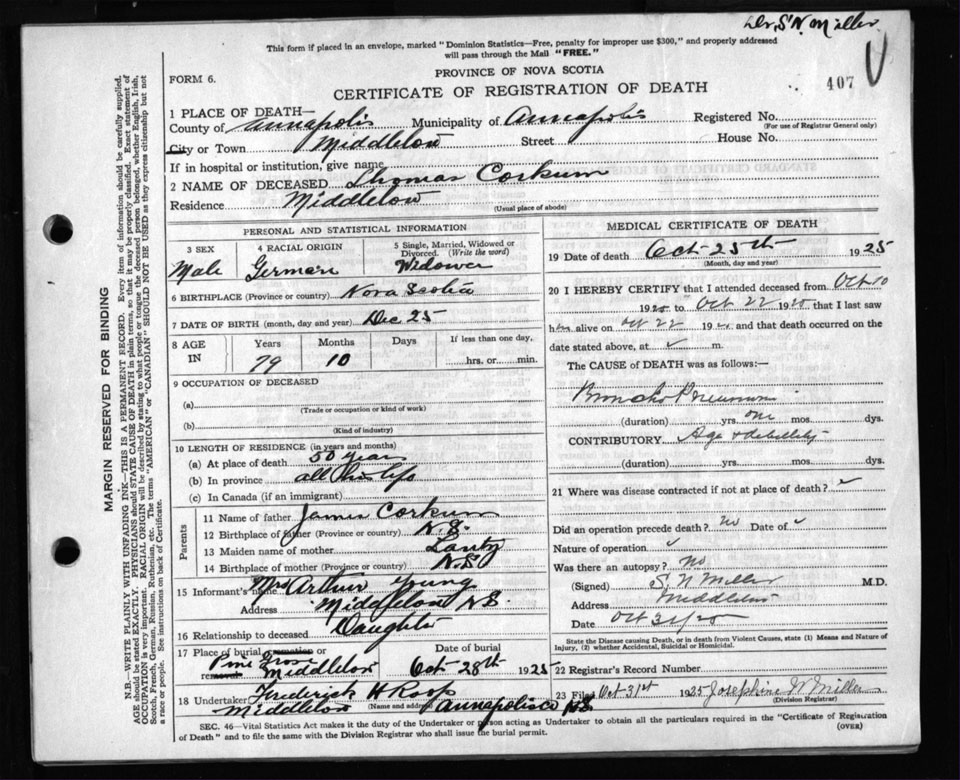 Dr. S. N. Miller
This form if placed in an envelope, marked "Dominion Statistics—Free, penalty for improper use $300," and properly addressed
will pass through the Mail "FREE."
PROVINCE OF NOVA SCOTIA
FORM 6.
CERTIFICATE OF REGISTRATION OF DEATH
407
1 PLACE OF DEATH—
County of Annapolis Municipality of Annapolis Registered No.
(For use of Registrar General only)
City or Town Middleton Street House No.
If in hospital or institution, give name
2 NAME OF DECEASED Thomas Corkum
Residence Middleton
(Usual place of abode)
PERSONAL AND STATISTICAL INFORMATION
3 SEX 4 RACIAL ORIGIN 5 Single, Married, Widowed or
Divorced. (Write the word)
Male German Widower
6 BIRTHPLACE (Province or country) Nova Scotia
7 DATE OF BIRTH (month, day and year) Dec 25
8 AGE IN Years Months Days If less than one day,
79 10 hrs. or min.
9 OCCUPATION OF DECEASED
(a)
(Trade or occupation or kind of work)
(b)
(Kind of industry)
10 LENGTH OF RESIDENCE (in years and months)
(a) At place of death 50 years
(b) In province all his life
(c) In Canada (if an immigrant)
Parents
11 Name of father James Corkum
12 Birthplace of father (Province or country) N.S.
13 Maiden name of mother Lantz
14 Birthplace of mother (Province or country) N.S
15 Informant's name Mrs Arthur Young
Address Middleton N.S.
16 Relationship to deceased Daughter
17 Place of burial cremation or
removal Pine Grove Middleton Oct 28th 1925
18 Undertaker Frederick H Roop
(Name and address)
Middleton Annapolis Co N.S.
MEDICAL CERTIFICATE OF DEATH
19 Date of death Oct 25th 1925
(Month, day and year)
20 I HEREBY CERTIFY that I attended deceased from Oct 10
19 to Oct 22 19 that I last saw
h alive on Oct 22 19 and that death occurred on
date stated above, at m.
The CAUSE OF DEATH was as follows:—
Broncho Pneumonia
(duration) yrs. one mos. dys.
CONTRIBUTORY Age & debility
(duration) yrs. mos. dys.
21 Where was disease contracted if not at place of death?
Did an operation precede death? no Date of
Nature of operation
Was there an autopsy? No
(Signed) S. N Miller M.D.
Address Middleton
Date Oct 31/25
State the Disease causing Death, or in death from Violent Causes, state (1) Means and Nature of
Injury, (2) whether Accidental, Suicidal or Homicidal.
22 Registrar's Record Number
23 Filed Oct 31st 1925 Josephine W Miller
(Division Registrar)
SEC. 46—Vital Statistics Act makes it the duty of the Undertaker or person acting as Undertaker to obtain all the particulars required in the "Certificate of Registration
of Death" and to file the same with the Division Registrar who shall issue the burial permit.
(OVER)
MARGIN RESERVED FOR BINDING
N.B.—WRITE PLAINLY WITH UNFADING INK—THIS IS A PERMANENT RECORD. Every item of information should be carefully supplied.
AGE should be stated EXACTLY. PHYSICIANS should STATE CAUSE OF DEATH in plain terms, so that it may be properly classified. Exact statement of
OCCUPATION is very important. RACIAL ORIGIN will be described by stating to what people or tongue the deceased person belonged, whether English, Irish,
Scotch, French, German, Russian, Ruthenian, etc. The terms "AMERICAN" or "CANADIAN" SHOULD NOT BE USED as they express citizenship but not
a race or people. See instructions on back of Certificate.